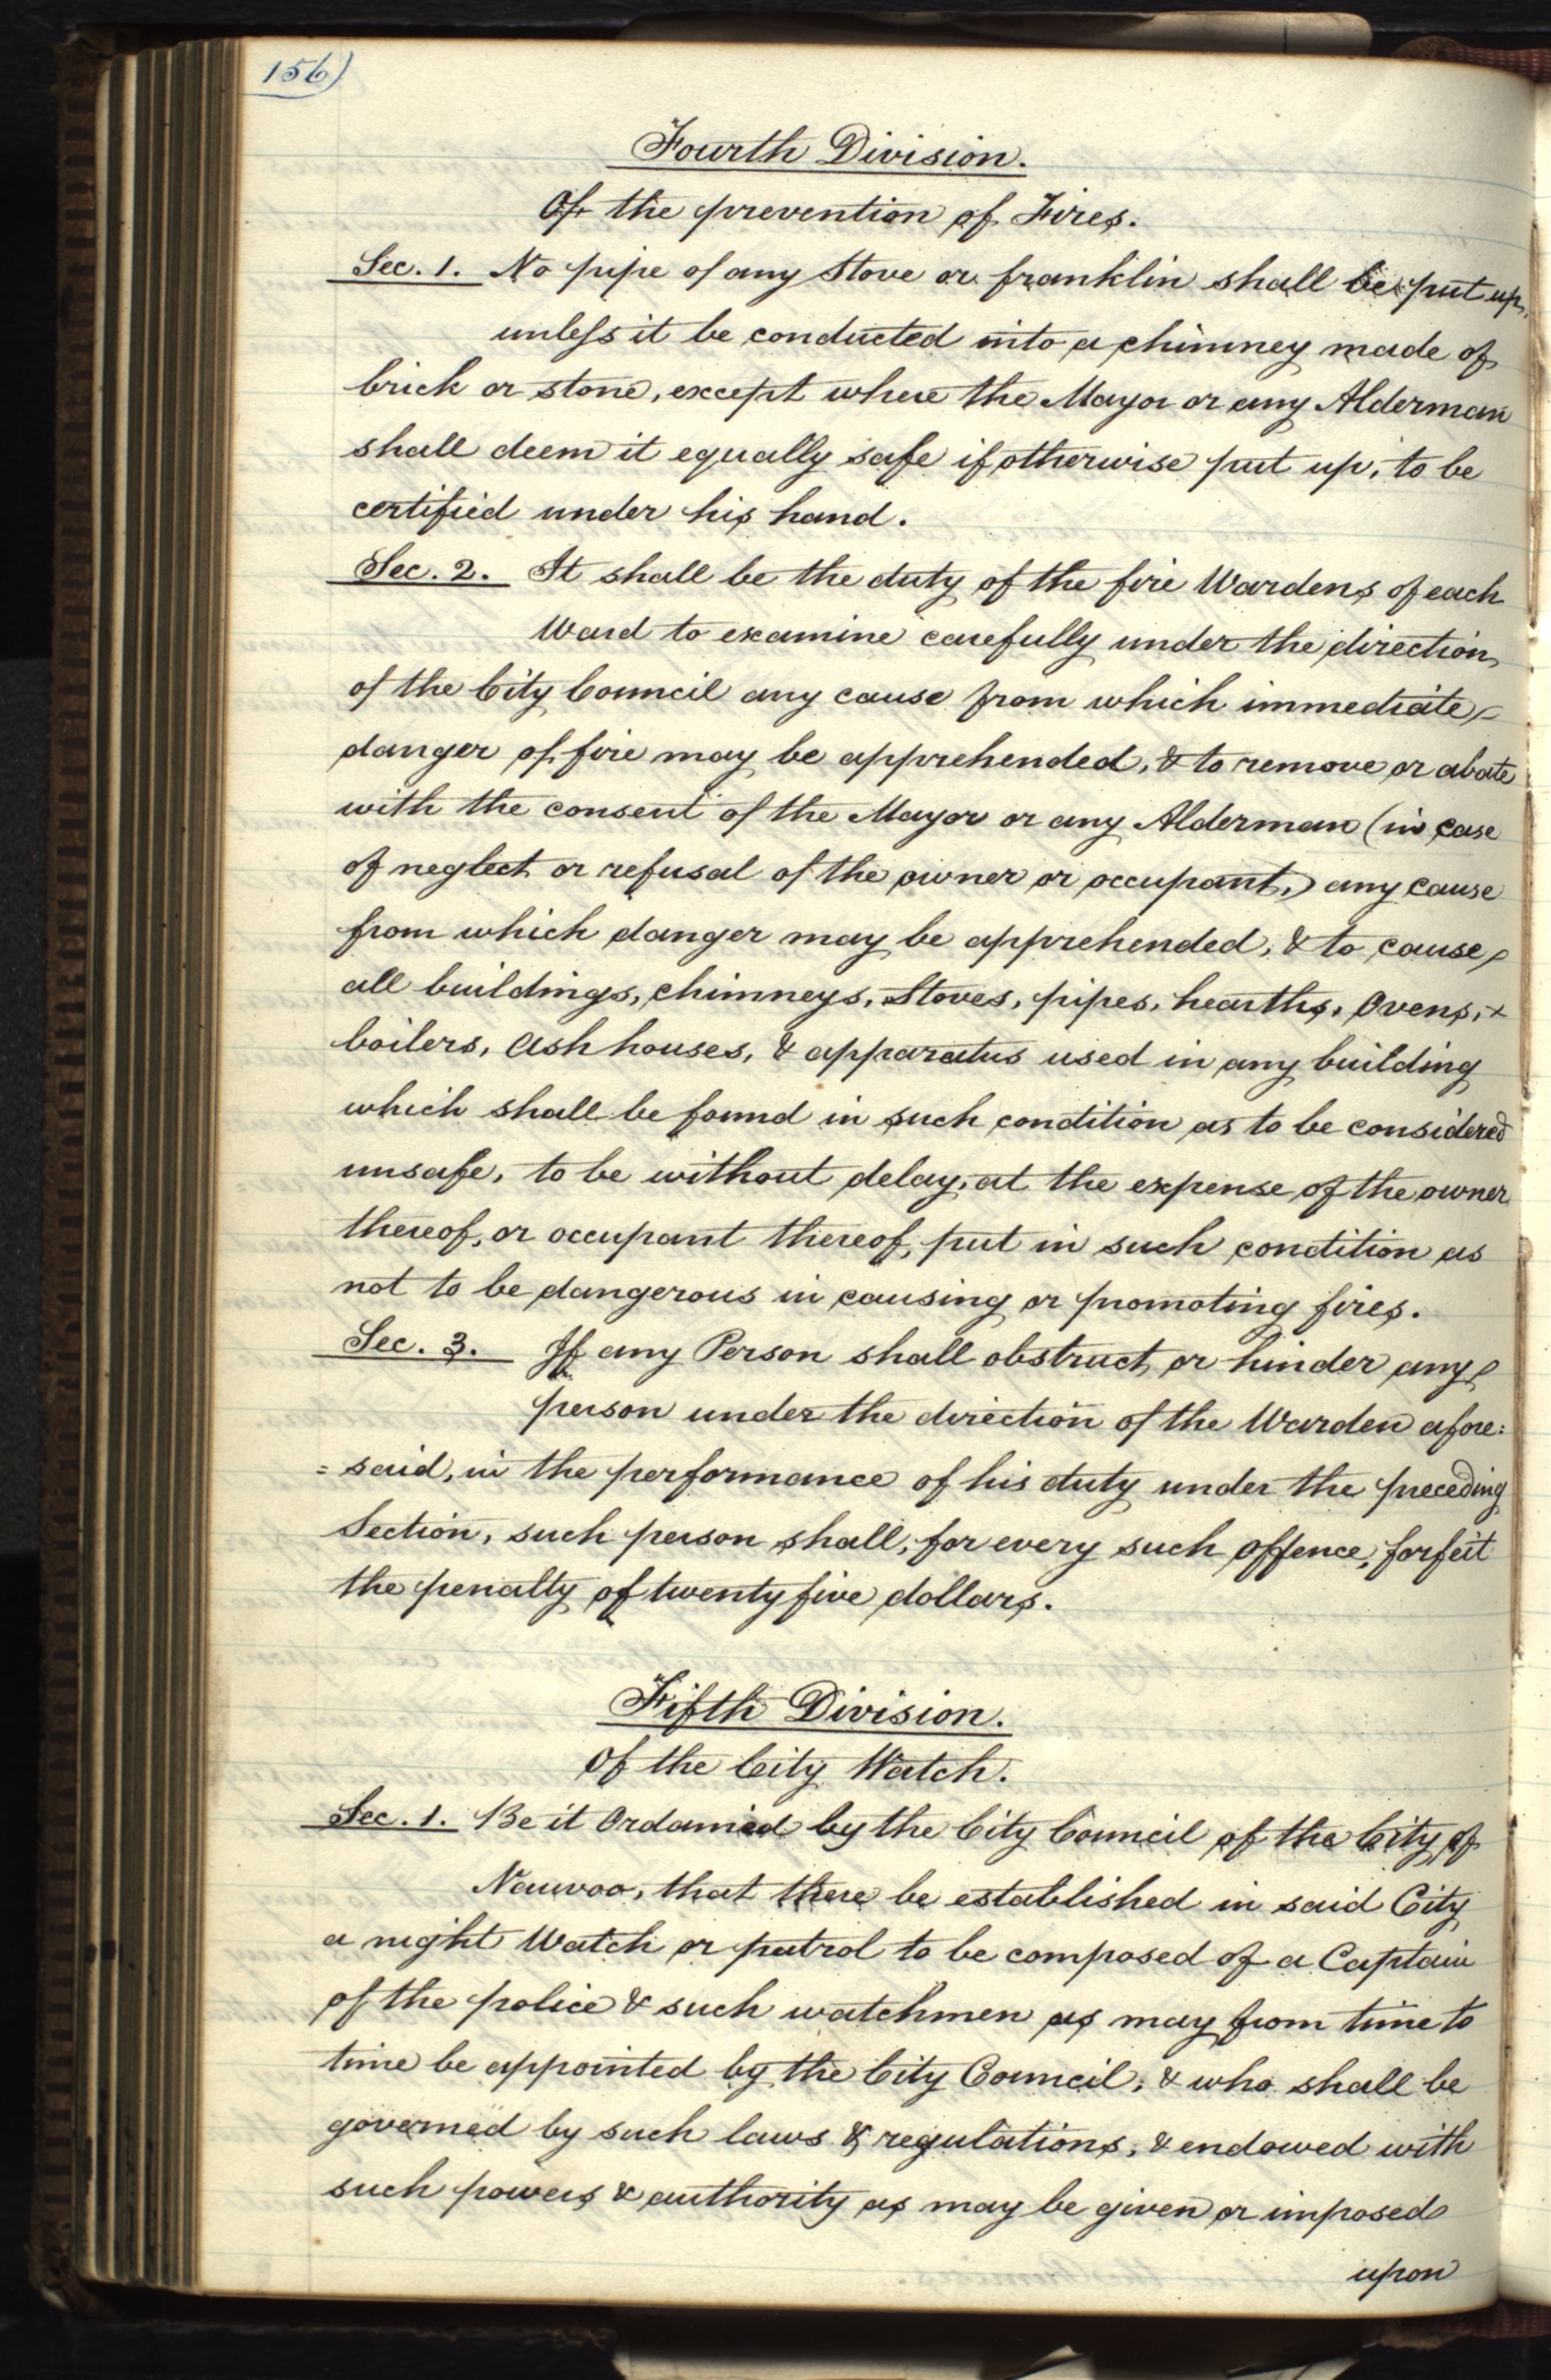 156)
Fourth Division.
Of the prevention of Fires.
Sec. 1. No pipe of any Stove or franklin shall be put up,
unless it be conducted into a chimney made of
brick or stone, except where the Mayor or any Alderman
shall deem it equally safe if otherwise put up, to be
certified under his hand.
Sec. 2. It shall be the duty of the fire Wardens of each
Ward to examine carefully under the direction
of the City Council any cause from which immediate
danger of fire may be apprehended, & to remove or abate
with the consent of the Mayor or any Alderman (in case
of neglect or refusal of the owner or occupant,) any cause
from which danger may be apprehended, & to cause
all buildings, chimneys, Stoves, pipes, hearths, Ovens,
boilers, Ash houses, & apparatus used in any building
which shall be found in such condition as to be considered
unsafe, to be without delay, at the expense of the owner
thereof, or occupant thereof, put in such condition as
not to be dangerous in causing or promoting fires.
Sec. 3. If any Person shall obstruct or hinder any
person under the direction of the Warden afore:
=said, in the performance of his duty under the preceding
Section, such person shall, for every such offence, forfeit
the penalty of twenty five dollars.
Fifth Division.
Of the City Watch.
Sec. 1. Be it Ordained by the City Council of the City of
Nauvoo, that there be established in said City
a night Watch or patrol to be composed of a Captain
of the police & such watchmen as may from time to
time be appointed by the City Council, & who shall be
governed by such laws & regulations, & endowed with
such powers & authority as may be given or imposed
upon